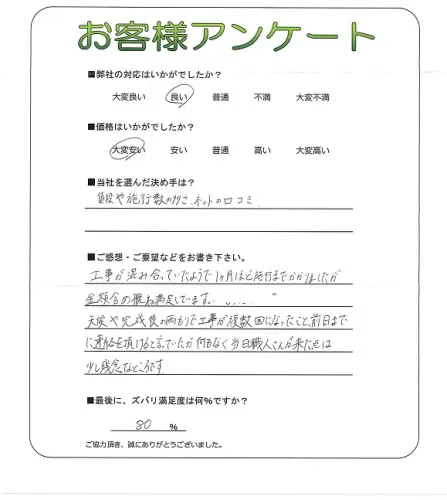 お客様アンケート
■弊社の対応はいかがでしたか?
大変良い 良い 普通 不満 大変不満
■価格はいかがでしたか?
大変安い 安い 普通 高い 大変高い
■当社を選んだ決め手は?
値段や施行数の多さ、ネットの口コミ。
■ご感想・ご要望などをお書き下さい。
工事が混み合っていたようで1ヶ月ほど施行までかかりましたが
金額含め概ね満足しています。
天候や完成後の雨もりで工事が複数回になったこと、前日まで
に連絡を頂けると言っていたが何もなく当日職人さんが来た点は
少し残念なところです
■最後に、ズバリ満足度は何%ですか?
80 %
ご協力頂き、誠にありがとうございました。